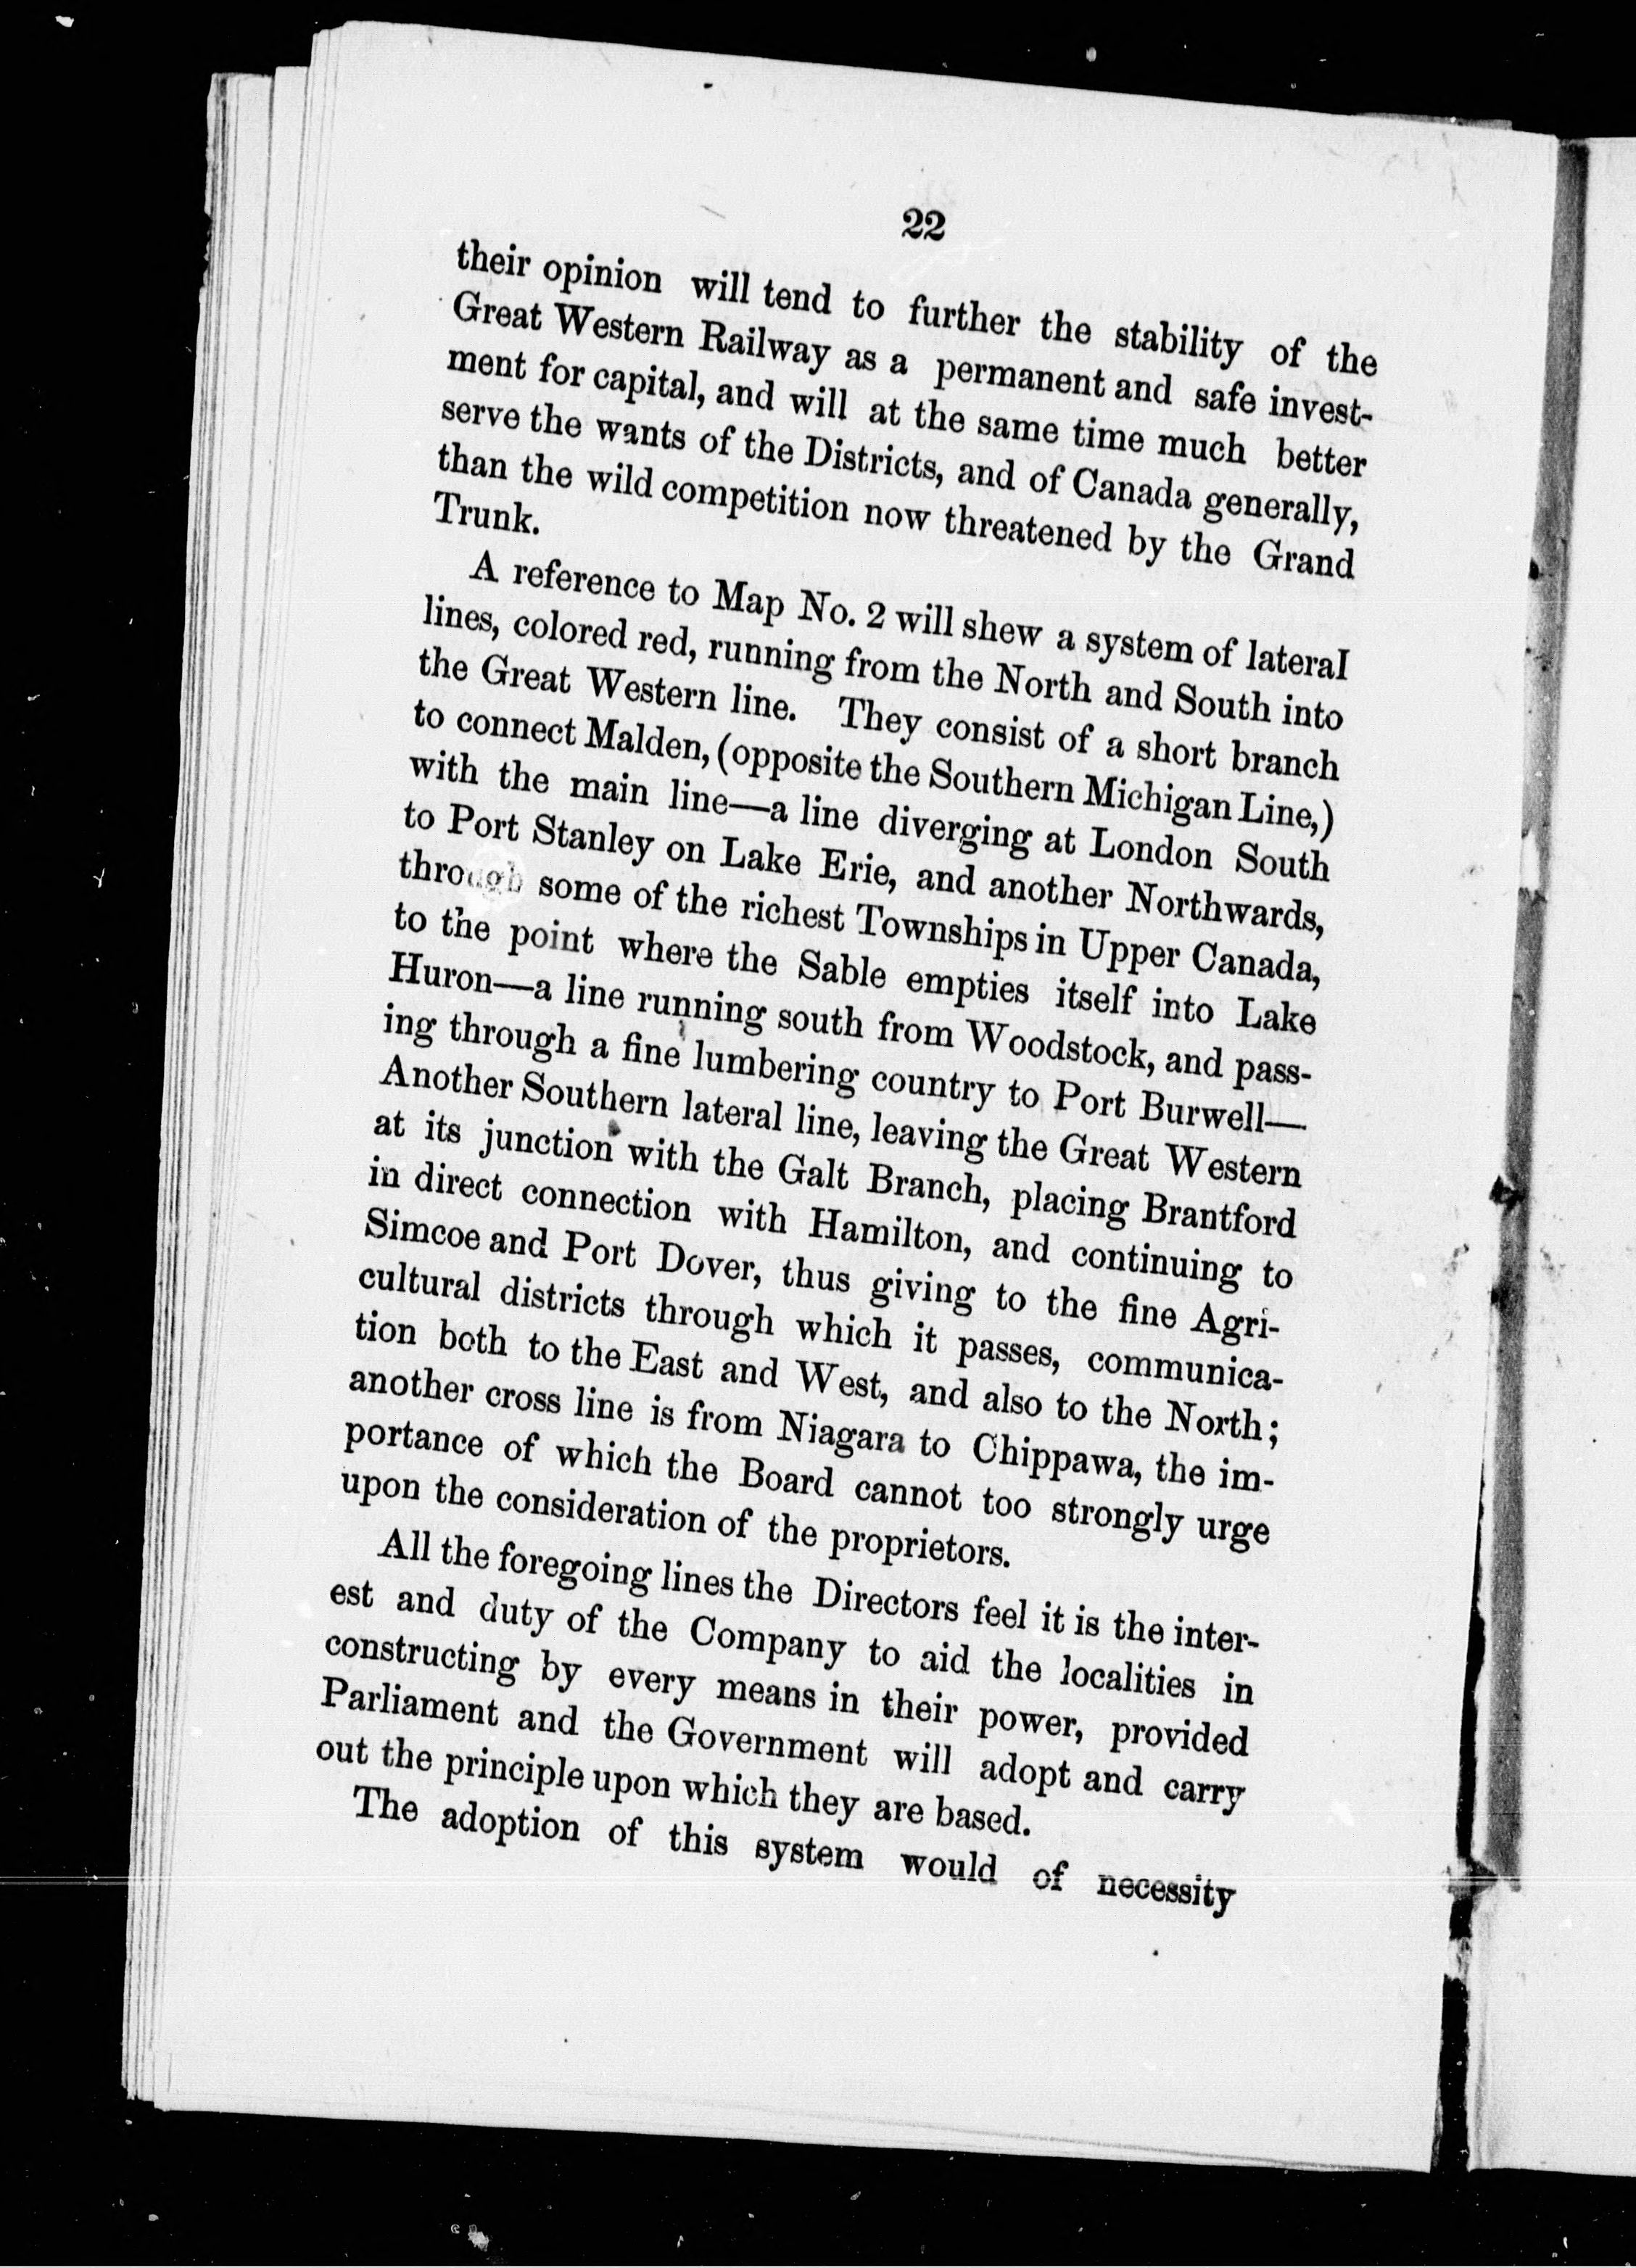 22
their opinion will tend to further the stability of the
Great Western Railway as a permanent and safe invest-
ment for capital, and will at the same time much better
serve the wants of the Districts, and of Canada generally,
than the wild competition now threatened by the Grand
Trunk.
A reference to Map No. 2 will shew a system of lateral
lines, colored red, running from the North and South into
the Great Western line. They consist of a short branch
to connect Malden, (opposite the Southern Michigan Line,)
with the main line—a line diverging at London South
to Port Stanley on Lake Erie, and another Northwards,
through some of the richest Townships in Upper Canada,
to the point where the Sable empties itself into Lake
Huron—a line running south from Woodstock, and pass-
ing through a fine lumbering country to Port Burwell—
Another Southern lateral line, leaving the Great Western
at its junction with the Galt Branch, placing Brantford
in direct connection with Hamilton, and continuing to
Simcoe and Port Dover, thus giving to the fine Agri-
cultural districts through which it passes, communica-
tion both to the East and West, and also to the North;
another cross line is from Niagara to Chippawa, the im-
portance of which the Board cannot too strongly urge
upon the consideration of the proprietors.
All the foregoing lines the Directors feel it is the inter-
est and duty of the Company to aid the localities in
constructing by every means in their power, provided
Parliament and the Government will adopt and carry
out the principle upon which they are based.
The adoption of this system would of necessity